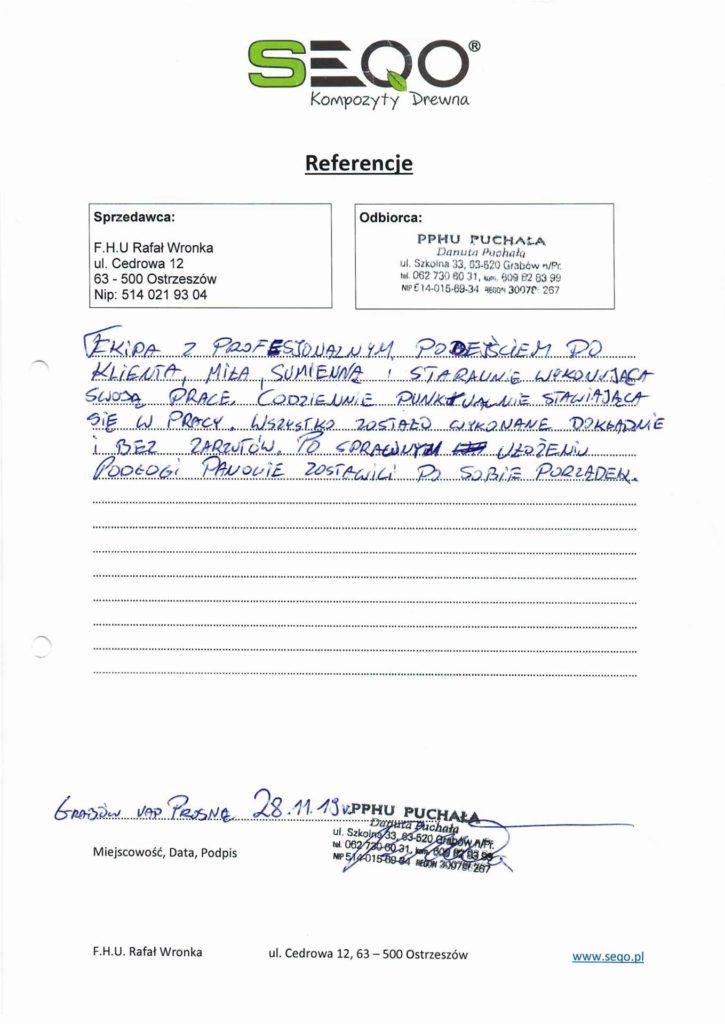 SEQO®
Kompozyty Drewna
Referencje
Sprzedawca:
F.H.U Rafał Wronka
ul. Cedrowa 12
63 - 500 Ostrzeszów
Nip: 514 021 93 04
Odbiorca:
PPHU PUCHAŁA
Danuta Puchała
ul. Szkolna 33, 63-520 Grabów n/Pr.
tel. 062 730 60 31, kom. 609 82 83 99
NIP 514-015-69-34 REGON 267
EKIPA Z PROFESJONALNYM PODEJŚCIEM DO
KLIENTA, MIŁA, SUMIENNA I STARANNIE WYKONUJĄCA
SWOJĄ PRACE. CODZIENNIE PUNKTUALNIE STAWIAJĄCA
SIĘ W PRACY. WSZYSTKO ZOSTAŁO WYKONANE DOKŁADNIE
I BEZ ZARZUTÓW. PO SPRAWNYM UŁOŻENIU
PODŁOGI PANOWIE ZOSTAWILI PO SOBIE PORZĄDEK.
GRABÓW NAD PROSNĄ 28.11.19
PPHU PUCHAŁA
Danuta Puchała
ul. Szkolna 33, 63-520 Grabów n/Pr.
tel. 062 730 60 31, kom. 609 82 83 99
NIP 514-015-69-34 REGON 267
Miejscowość, Data, Podpis
F.H.U. Rafał Wronka ul. Cedrowa 12, 63 – 500 Ostrzeszów www.seqo.pl